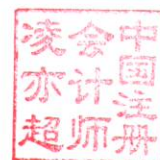 中国注册
会计师
凌亦超